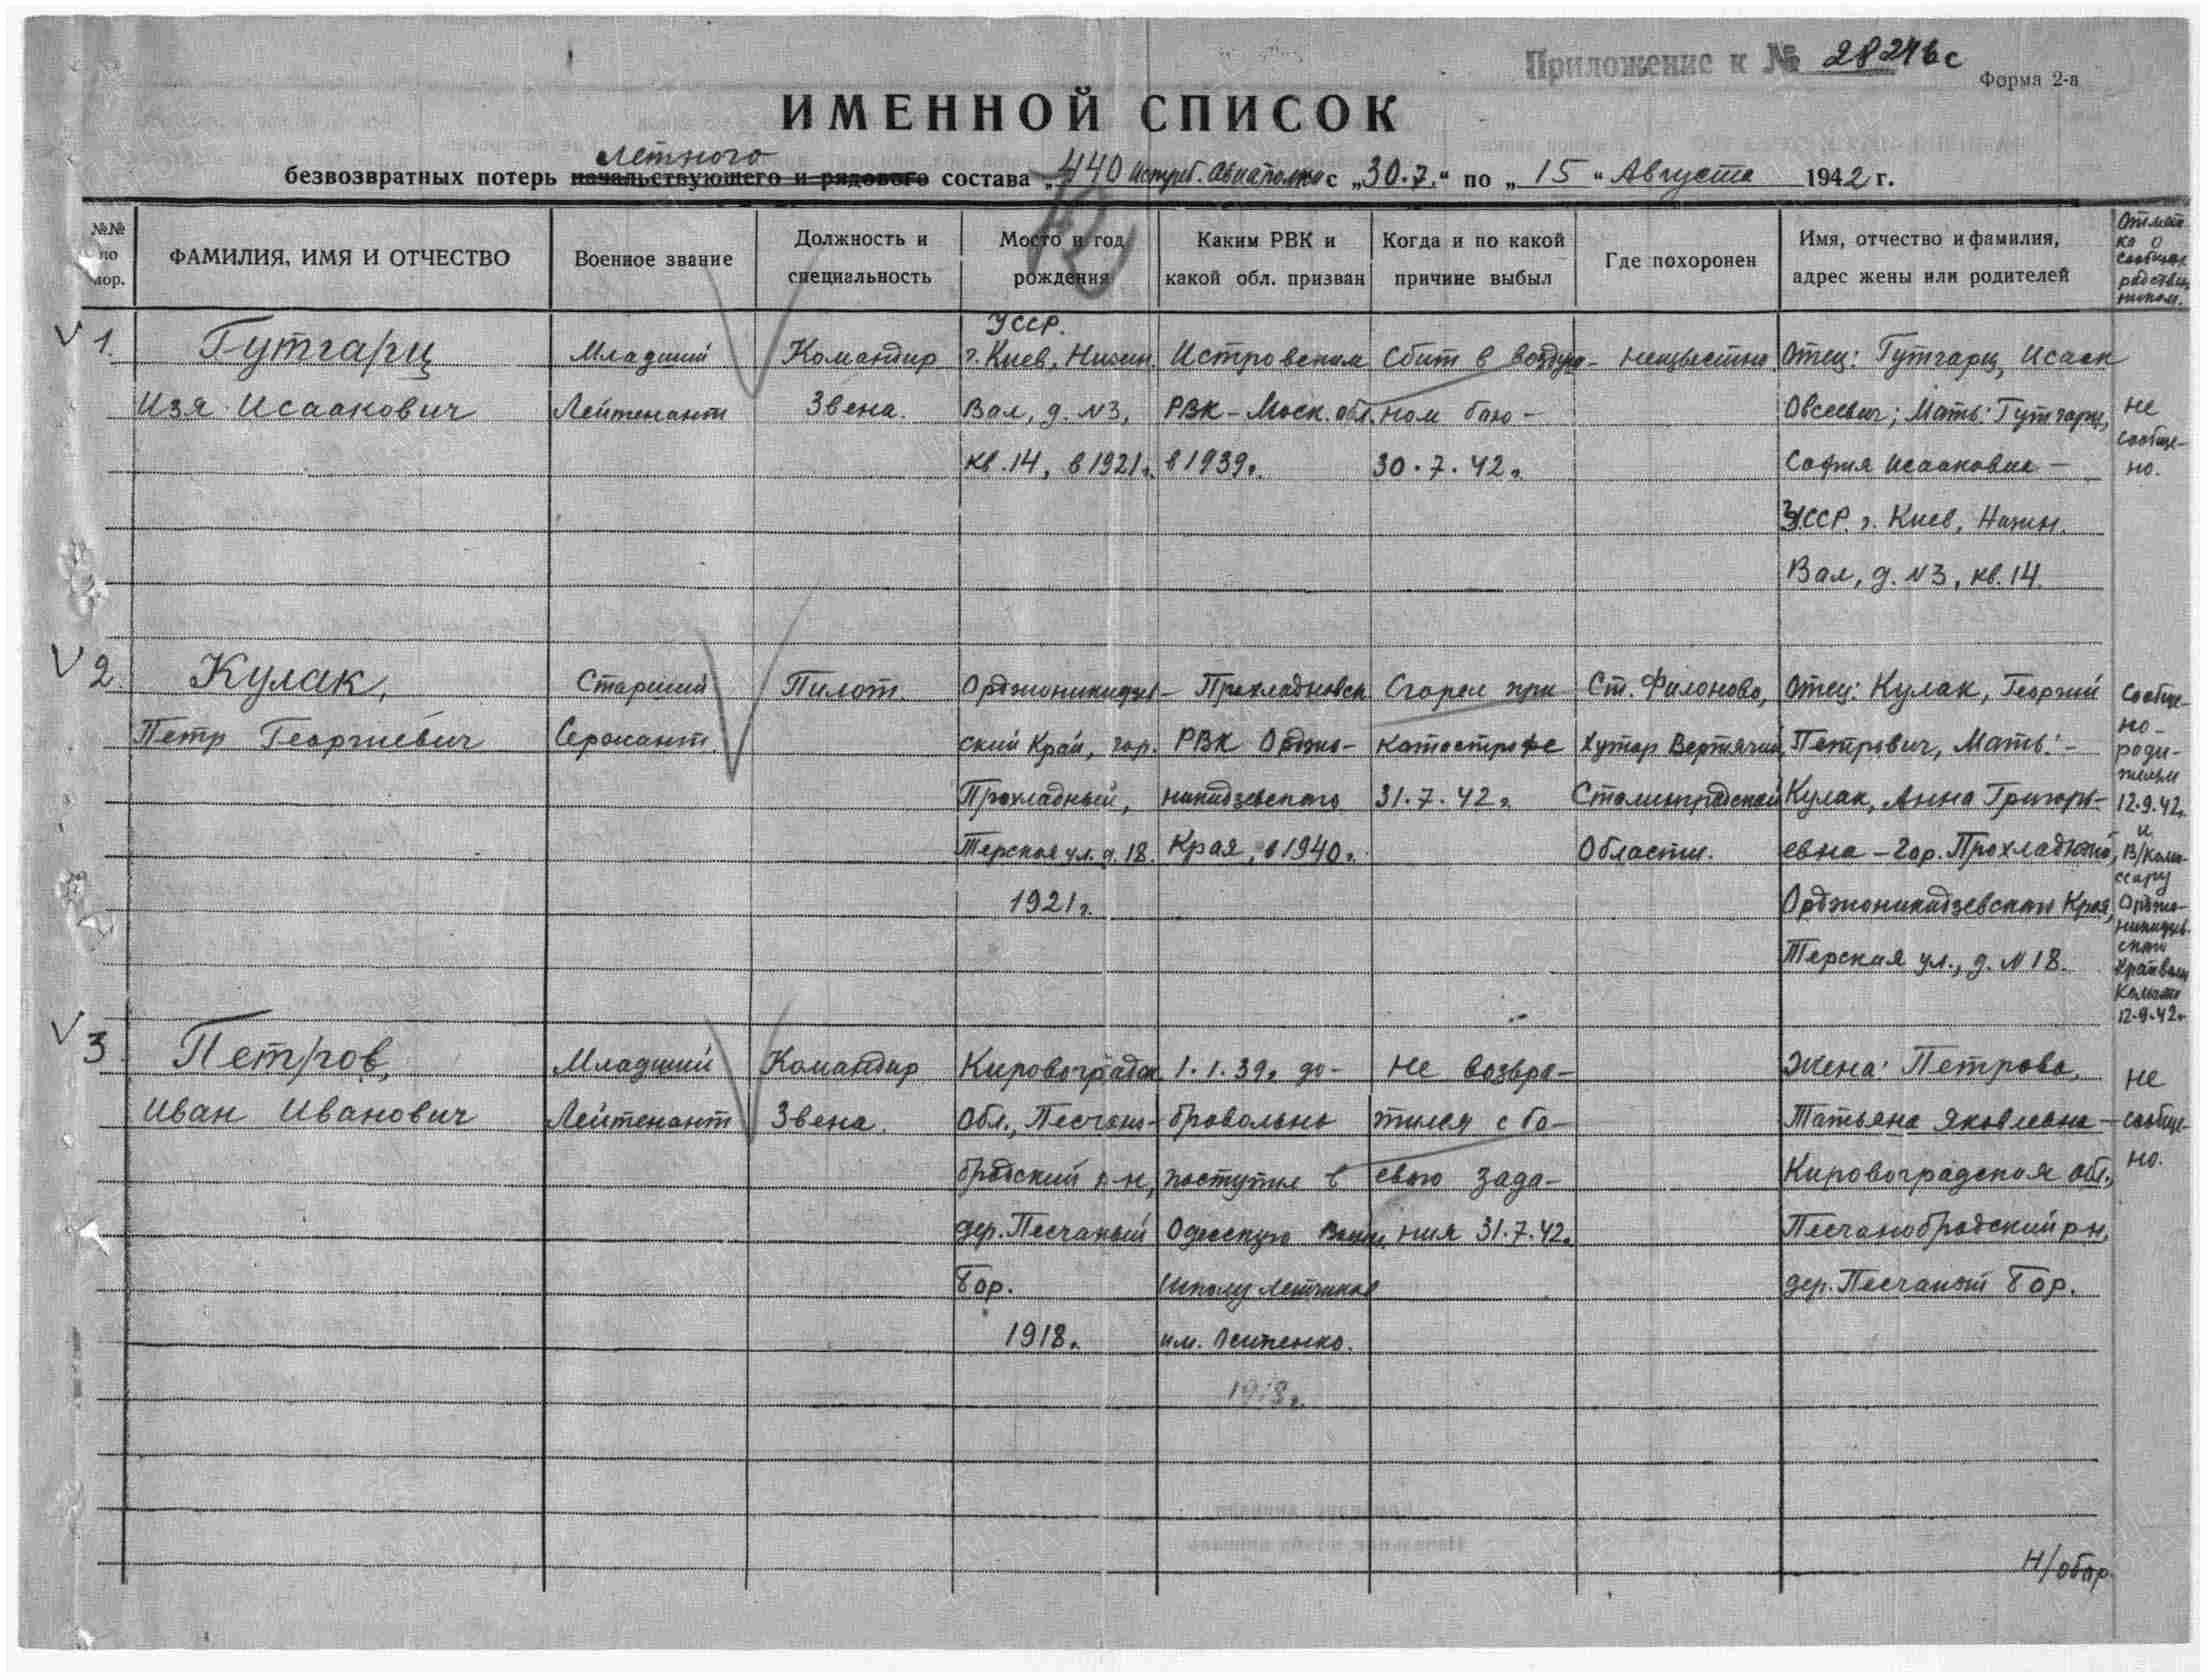 Приложение к № 28246с
Форма 2-а
ИМЕННОЙ СПИСОК
летного
безвозвратных потерь начальствующего и рядового состава „440 Истреб. Авиаполка с „30.7.“ по „15“ Августа 1942 г.
№№ по пор.
ФАМИЛИЯ, ИМЯ И ОТЧЕСТВО
Военное звание
Должность и специальность
Место и год рождения
Каким РВК и какой обл. призван
Когда и по какой причине выбыл
Где похоронен
Имя, отчество и фамилия, адрес жены или родителей
Отметка о сообщ. родствен никам.
V 1.
Гутгарц
Изя Исаакович
Младший
Лейтенант
Командир
Звена.
УССР.
г. Киев, Нижн.
Вал, д. №3,
кв. 14, в 1921г.
Истровским
РВК – Моск. обл.
в 1939г.
Сбит в воздуш-
ном бою –
30.7.42г.
Неизвестно.
Отец: Гутгарц, Исаак
Овсеевич; Мать: Гутгарц,
София Исааковна –
УССР. г. Киев, Нижн.
Вал, д. №3, кв. 14.
не
сообще-
но.
V 2.
Кулак,
Петр Георгиевич
Старший
Сержант.
Пилот.
Орджоникидзев-
ский Край, гор.
Прохладный,
Терская ул. д. 18.
1921г.
Прохладновск
РВК Орджо-
никидзевского
Края, в 1940г.
Сгорел при
катастрофе
31.7.42г.
Ст. Филоново,
Хутор Вертячий,
Сталинградской
Области.
Отец: Кулак, Георгий
Петрович, Мать: –
Кулак, Анна Григорь-
евна – Гор. Прохладный,
Орджоникидзевский Края,
Терская ул., д. №18.
Сообще-
но
роди-
телям
12.9.42г.
и
В/коми-
ссару
Орджо-
никидзев.
12.9.42г.
V 3.
Петров,
Иван Иванович
Младший
Лейтенант
Командир
Звена.
Кировоградск
Обл., Песчано-
бродский р-н,
дер. Песчаный
Бор.
1918г.
1.1.39г. до-
бровольно
поступил в
Одесскую Воен.
Школу Летчиков
им. Осипенко.
Не возвра-
тился с бо-
евого зада-
ния 31.7.42г.
Жена: Петрова,
Татьяна Яковлевна –
Кировоградская обл.,
Песчанобродский рн,
дер. Песчаный Бор.
не
сообще-
но.
Н/обор.